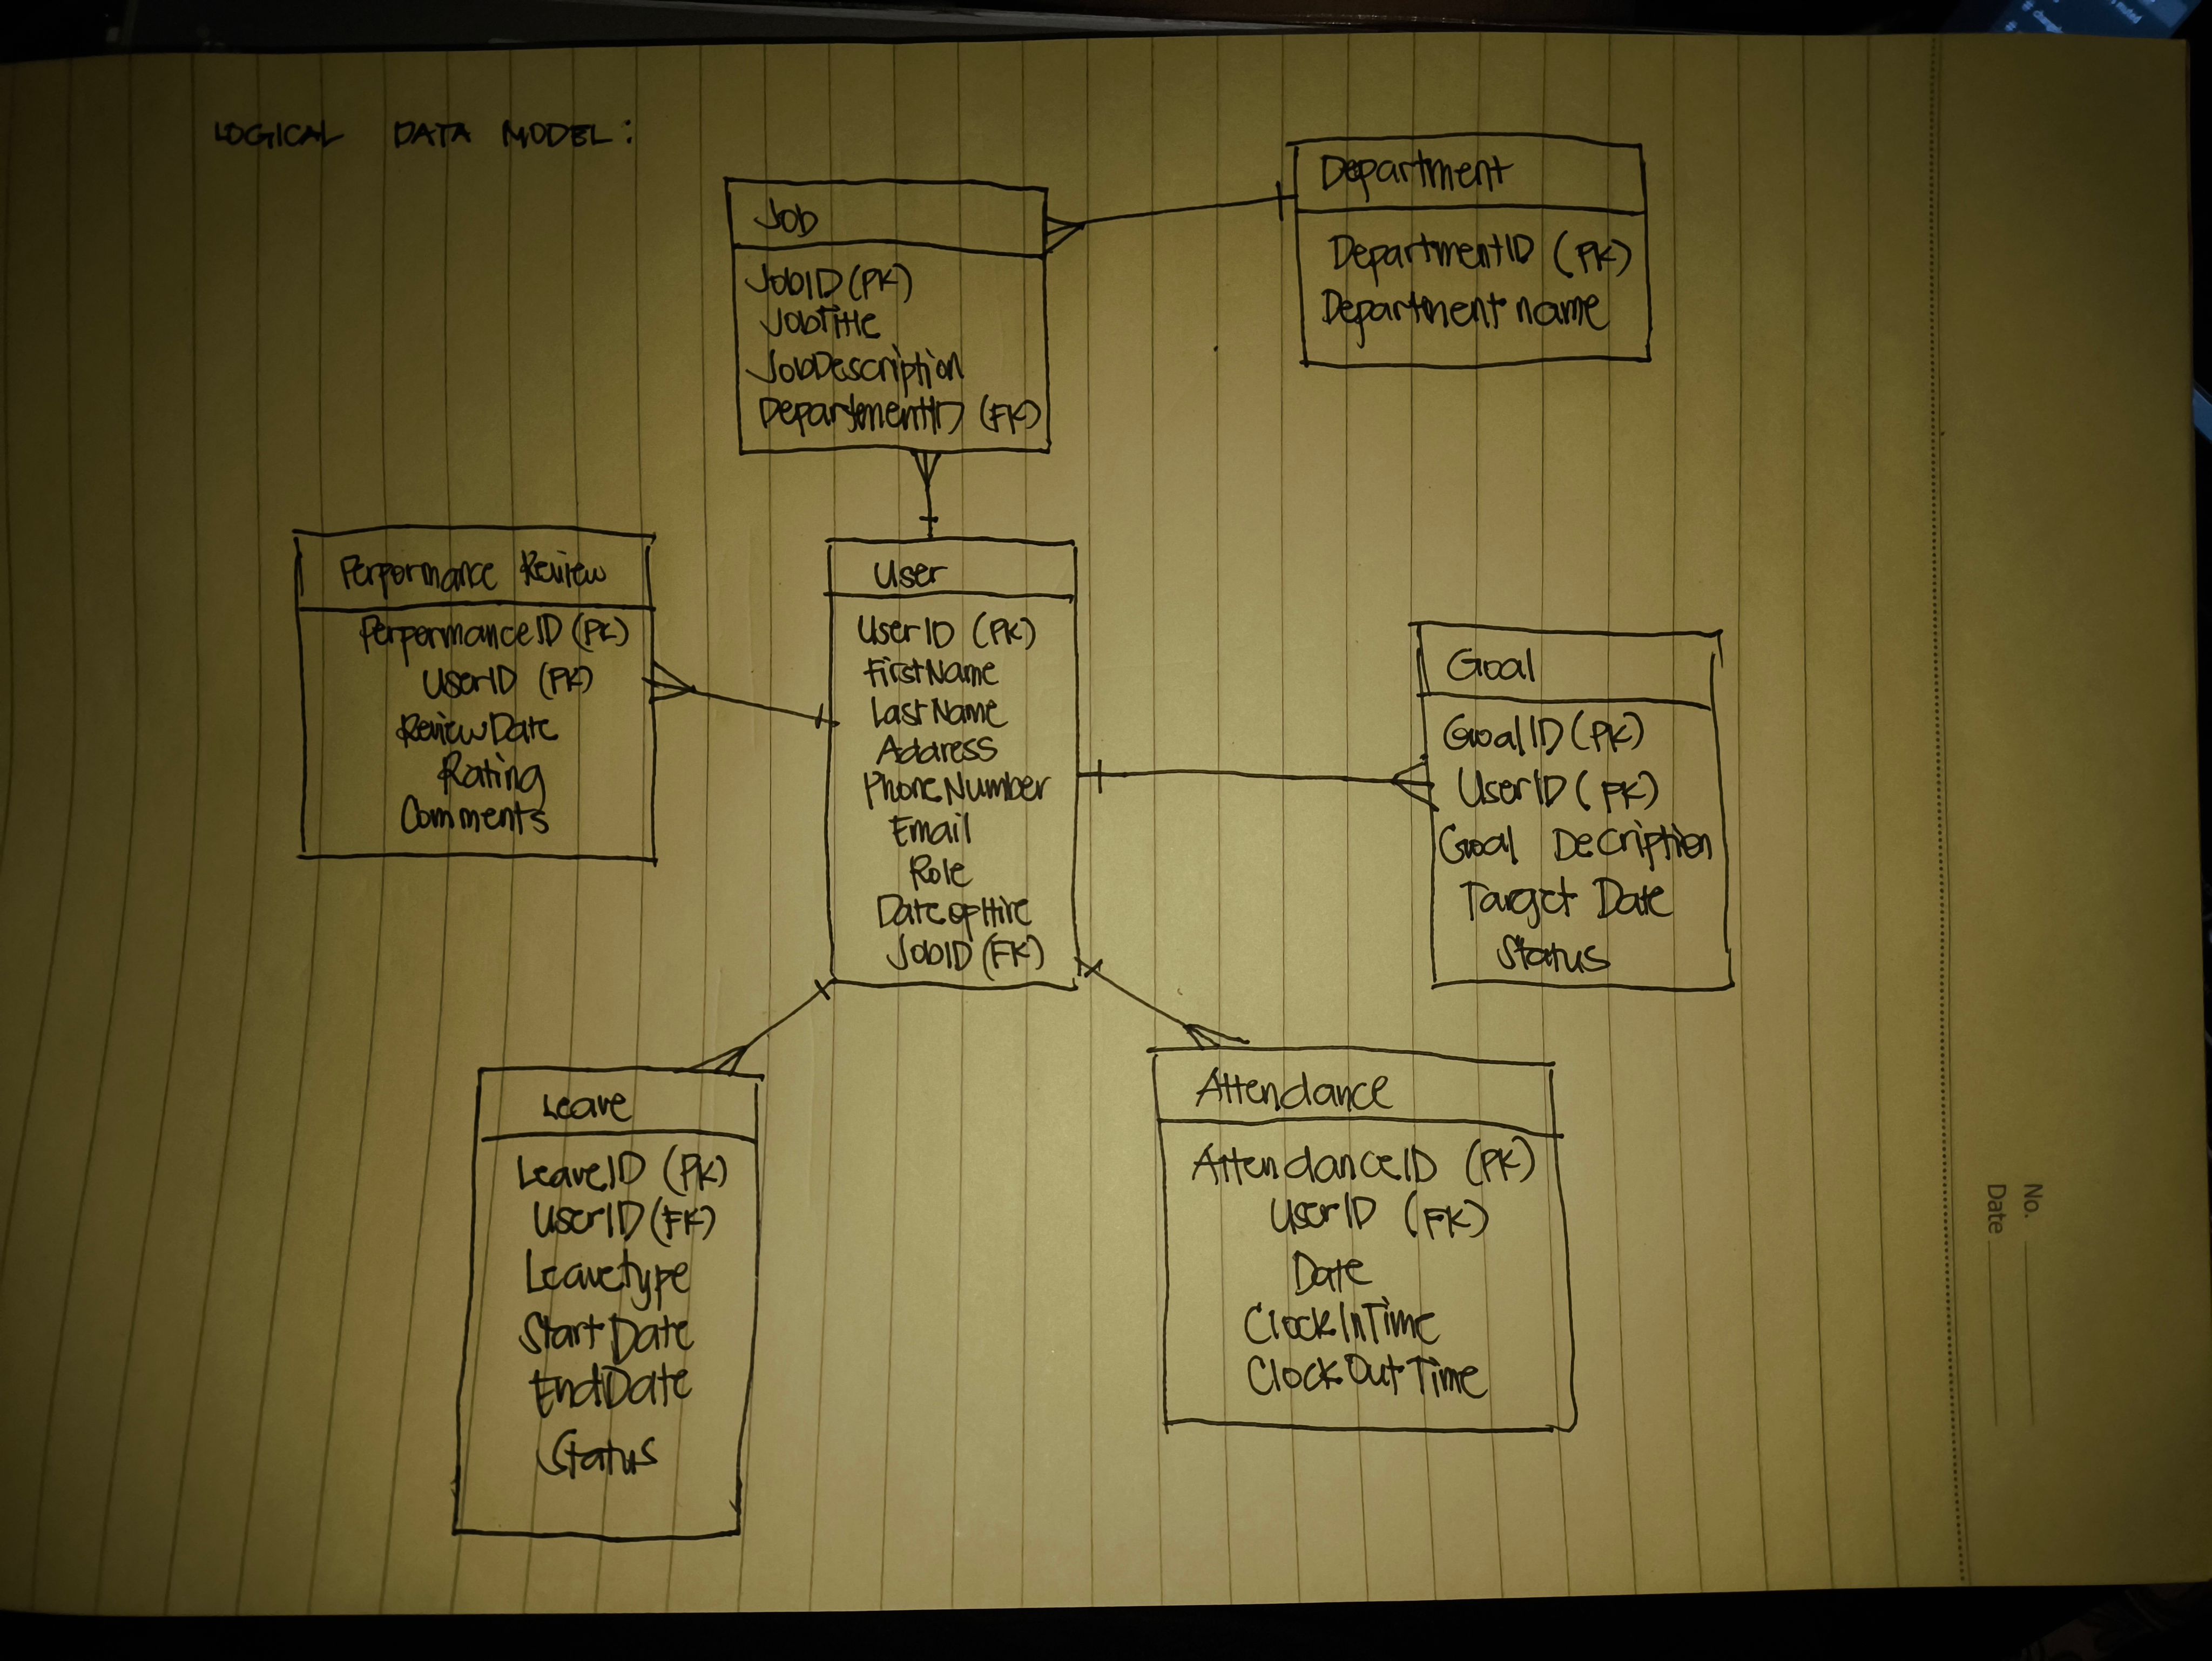 LOGICAL DATA MODEL:
Job
JobID (PK)
JobTitle
JobDescription
DepartmentID (FK)
Department
DepartmentID (PK)
Department name
Performance Review
PerformanceID (PK)
UserID (PK)
ReviewDate
Rating
Comments
User
UserID (PK)
FirstName
LastName
Address
PhoneNumber
Email
Role
DateofHire
JobID (FK)
Goal
GoalID (PK)
UserID (FK)
Goal Decription
Target Date
Status
Leave
LeaveID (PK)
UserID (FK)
Leavetype
StartDate
EndDate
Status
Attendance
AttendanceID (PK)
UserID (FK)
Date
ClockInTime
ClockOutTime
No.
Date